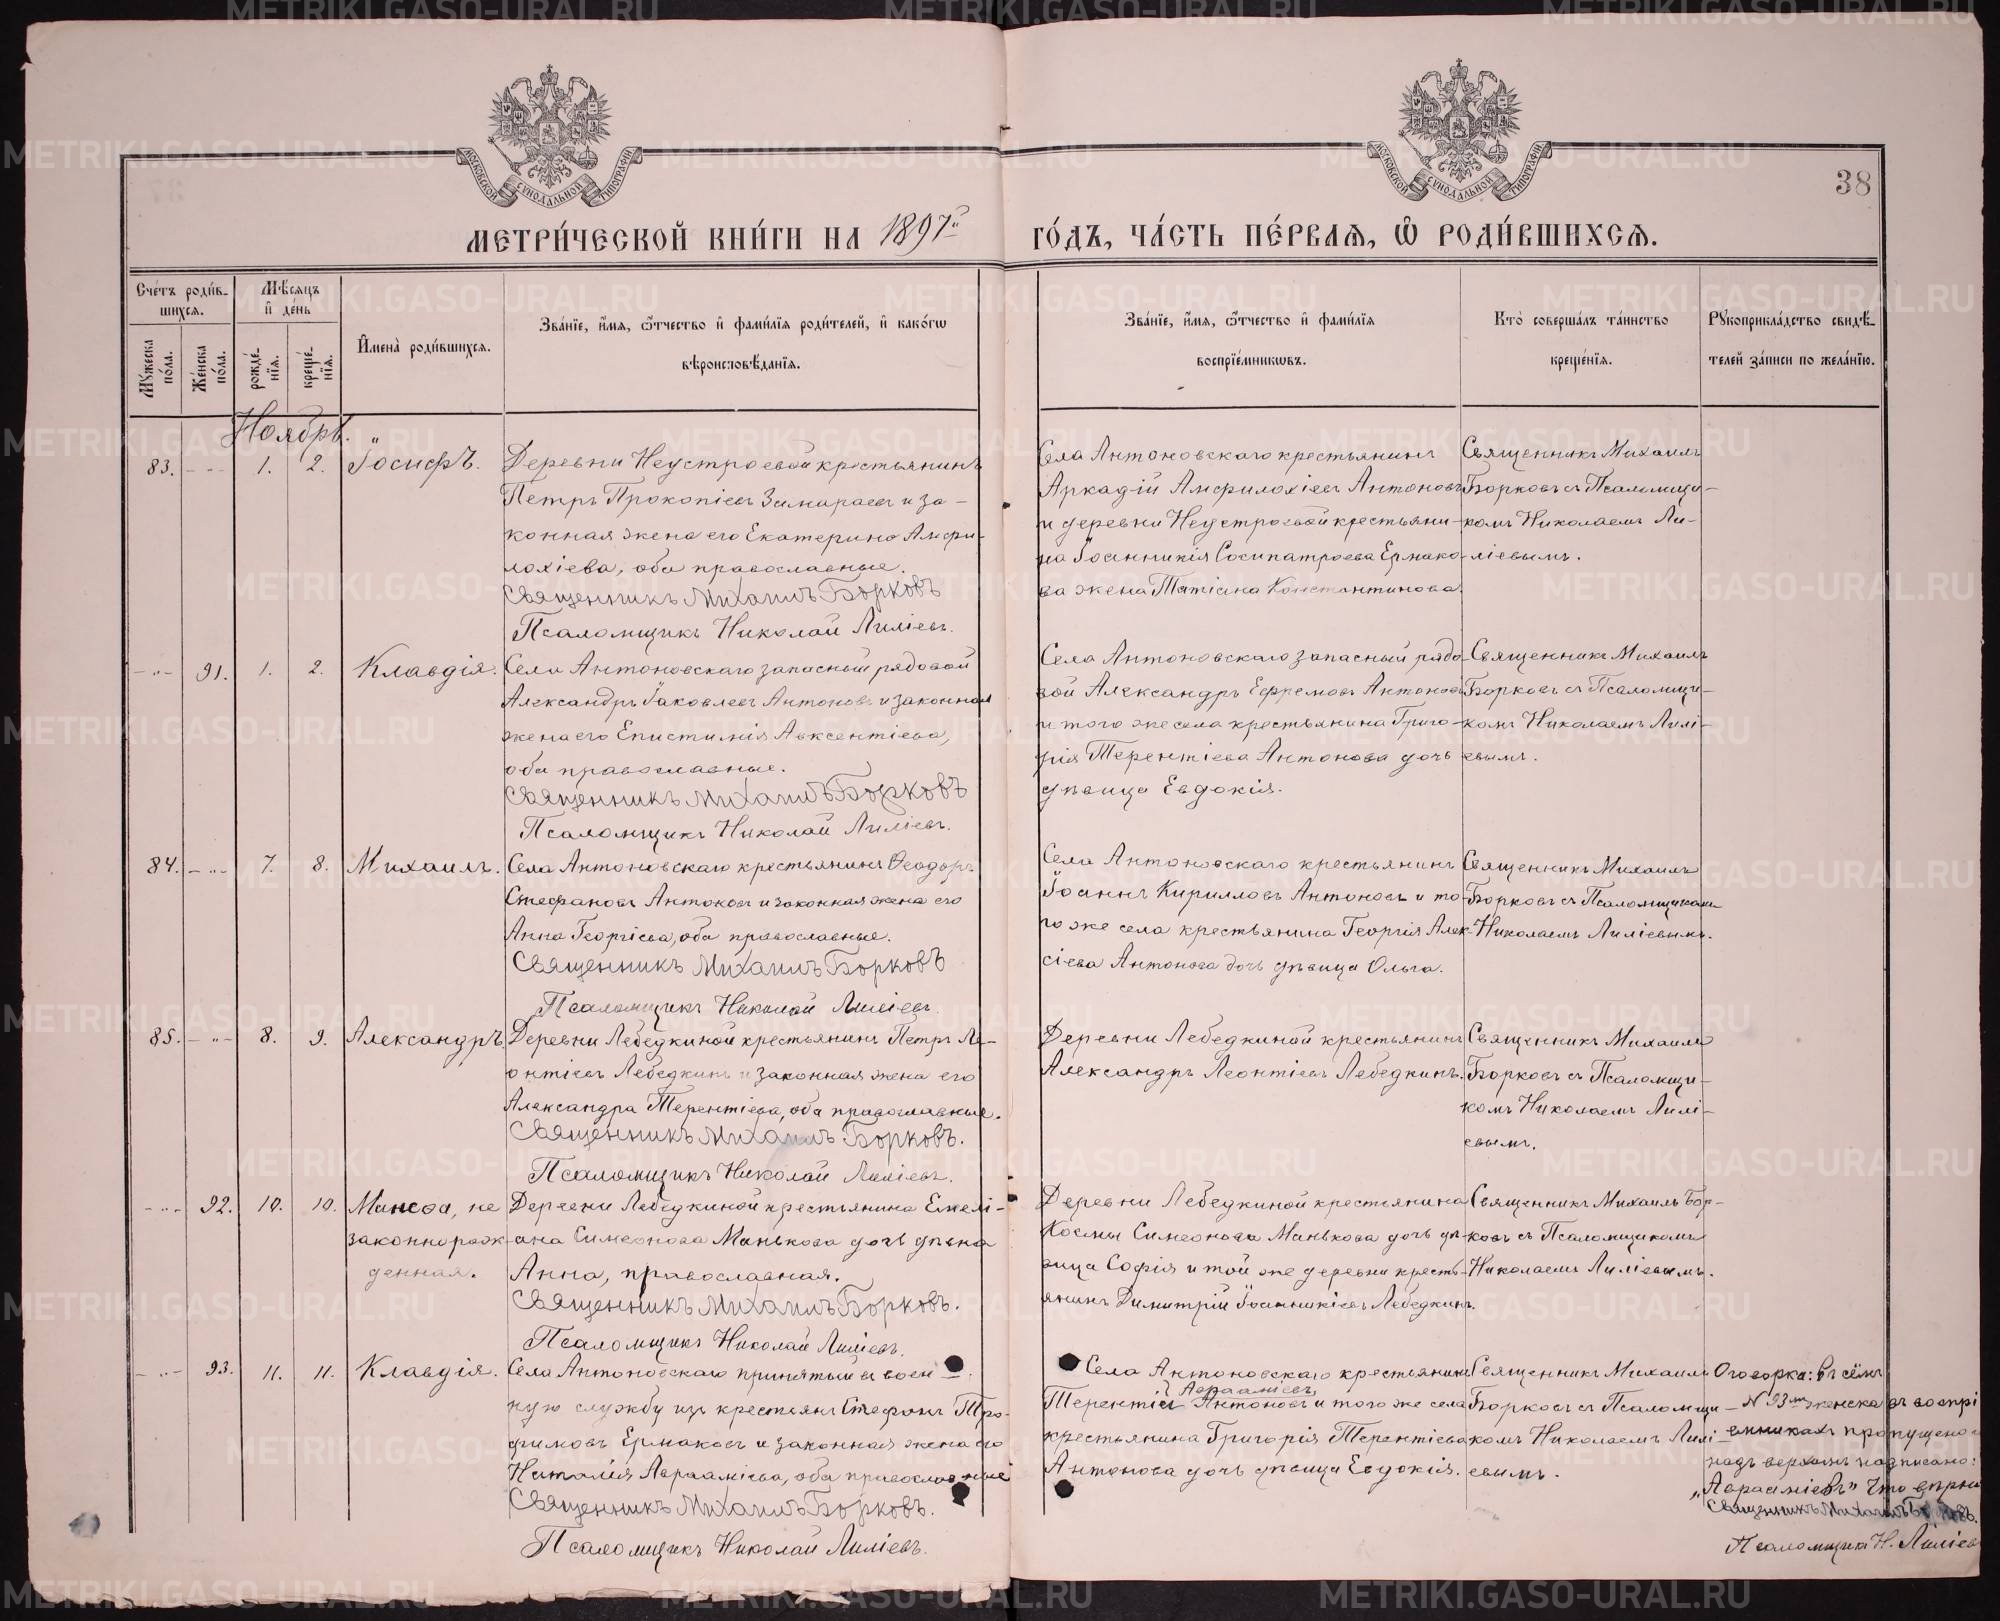 МОСКОВСКОЙ СУНОДАЛЬНОЙ ТИПОГРАФІИ
МОСКОВСКОЙ СУНОДАЛЬНОЙ ТИПОГРАФІИ
38
МЕТРИ́ЧЕСКОЙ КНИ́ГИ НА 1897й ГО́ДЪ, ЧА́СТЬ ПЕ́РВАЯ, Ѡ РОДИ́ВШИХСЯ.
Сче́тъ роди́в-
шихся.
Му́жеска по́ла.
Же́нска по́ла.
Мѣ́сяцъ
и де́нь
рожде́-
нїя.
креще́-
нїя.
Имена̀ роди́вшихся.
Зва́нїе, и́мя, ѻ́тчество и фами́лїя роди́телей, и како́гѡ
вѣроисповѣ́данїя.
Зва́нїе, и́мя, ѻ́тчество и фами́лїя
воспрїе́мникѡвъ.
Кто̀ соверша́лъ та́инство
креще́нїя.
Рукоприкла́дство свидѣ́-
телей за́писи по жела́нїю.
Ноябрь.
83. - " - 1. 2. Іосифъ.
Деревни Неустроевой крестьянинъ
Петръ Прокопіевъ Замараевъ и за-
конная жена его Екатерина Амфи-
лохіева, оба православные.
Священникъ Михаилъ Борковъ
Псаломщикъ Николай Лиліевъ.
Села Антоновскаго крестьянинъ
Аркадій Амфилохіевъ Антоновъ
и деревни Неустроевой крестьяни-
на Іоанникія Сосипатрова Ермако-
ва жена Татіана Константинова.
Священникъ Михаилъ
Борковъ съ Псаломщи-
комъ Николаемъ Ли-
ліевымъ.
- " - 91. 1. 2. Клавдія.
Села Антоновскаго запасный рядовой
Александръ Іаковлевъ Антоновъ и законная
жена его Епистимія Авксентіева,
оба православные.
Священникъ Михаилъ Борковъ
Псаломщикъ Николай Лиліевъ.
Села Антоновскаго запасный рядо-
вой Александръ Ефремовъ Антоновъ
и того же села крестьянина Григо-
рія Терентіева Антонова дочь
дѣвица Евдокія.
Священникъ Михаилъ
Борковъ съ Псаломщи-
комъ Николаемъ Лилі-
евымъ.
84. - " - 7. 8. Михаилъ.
Села Антоновскаго крестьянинъ Ѳеодоръ
Стефановъ Антоновъ и законная жена его
Анна Георгіева, оба православные.
Священникъ Михаилъ Борковъ
Псаломщикъ Николай Лиліевъ.
Села Антоновскаго крестьянинъ
Іоаннъ Кирилловъ Антоновъ и то-
го же села крестьянина Георгія Алек-
сіева Антонова дочь дѣвица Ольга.
Священникъ Михаилъ
Борковъ съ Псаломщикомъ
Николаемъ Лиліевымъ.
85. - " - 8. 9. Александръ
Деревни Лебедкиной крестьянинъ Петръ Ле-
онтіевъ Лебедкинъ и законная жена его
Александра Терентіева, оба православные.
Священникъ Михаилъ Борковъ.
Псаломщикъ Николай Лиліевъ.
Деревни Лебедкиной крестьянинъ
Александръ Леонтіевъ Лебедкинъ.
Священникъ Михаилъ
Борковъ съ Псаломщи-
комъ Николаемъ Лилі-
евымъ.
- " - 92. 10. 10. Манефа, не
законнорож-
денная.
Деревни Лебедкиной крестьянина Емелі-
ана Симеонова Манькова дочь дѣвица
Анна, православная.
Священникъ Михаилъ Борковъ.
Псаломщикъ Николай Лиліевъ.
Деревни Лебедкиной крестьянина
Космы Симеонова Манькова дочь дѣ-
вица Софія и той же деревни кресть-
янинъ Димитрій Іоанникіевъ Лебедкинъ.
Священникъ Михаилъ Бор-
ковъ съ Псаломщикомъ
Николаемъ Лиліевымъ.
- " - 93. 11. 11. Клавдія.
Села Антоновскаго принятый въ воен-
ную службу изъ крестьянъ Стефанъ Тро-
фимовъ Ермаковъ и законная жена его
Наталія Авраамієва, оба православные
Священникъ Михаилъ Борковъ.
Псаломщикъ Николай Лиліевъ.
Села Антоновскаго крестьянинъ
Авраамієвъ
Терентій Антоновъ и того же села
крестьянина Григорія Терентіева
Антонова дочь дѣвица Евдокія.
Священникъ Михаилъ
Борковъ съ Псаломщи-
комъ Николаемъ Лилі-
евымъ.
Оговорка: въ сёмъ
№ 93мъ женска въ воспрі
емникахъ пропущено и
надъ верхомъ надписано:
„Авраамієвъ" Что вѣрно
Священникъ Михаилъ Борковъ.
Псаломщикъ Н. Лиліевъ
METRIKI.GASO-URAL.RU